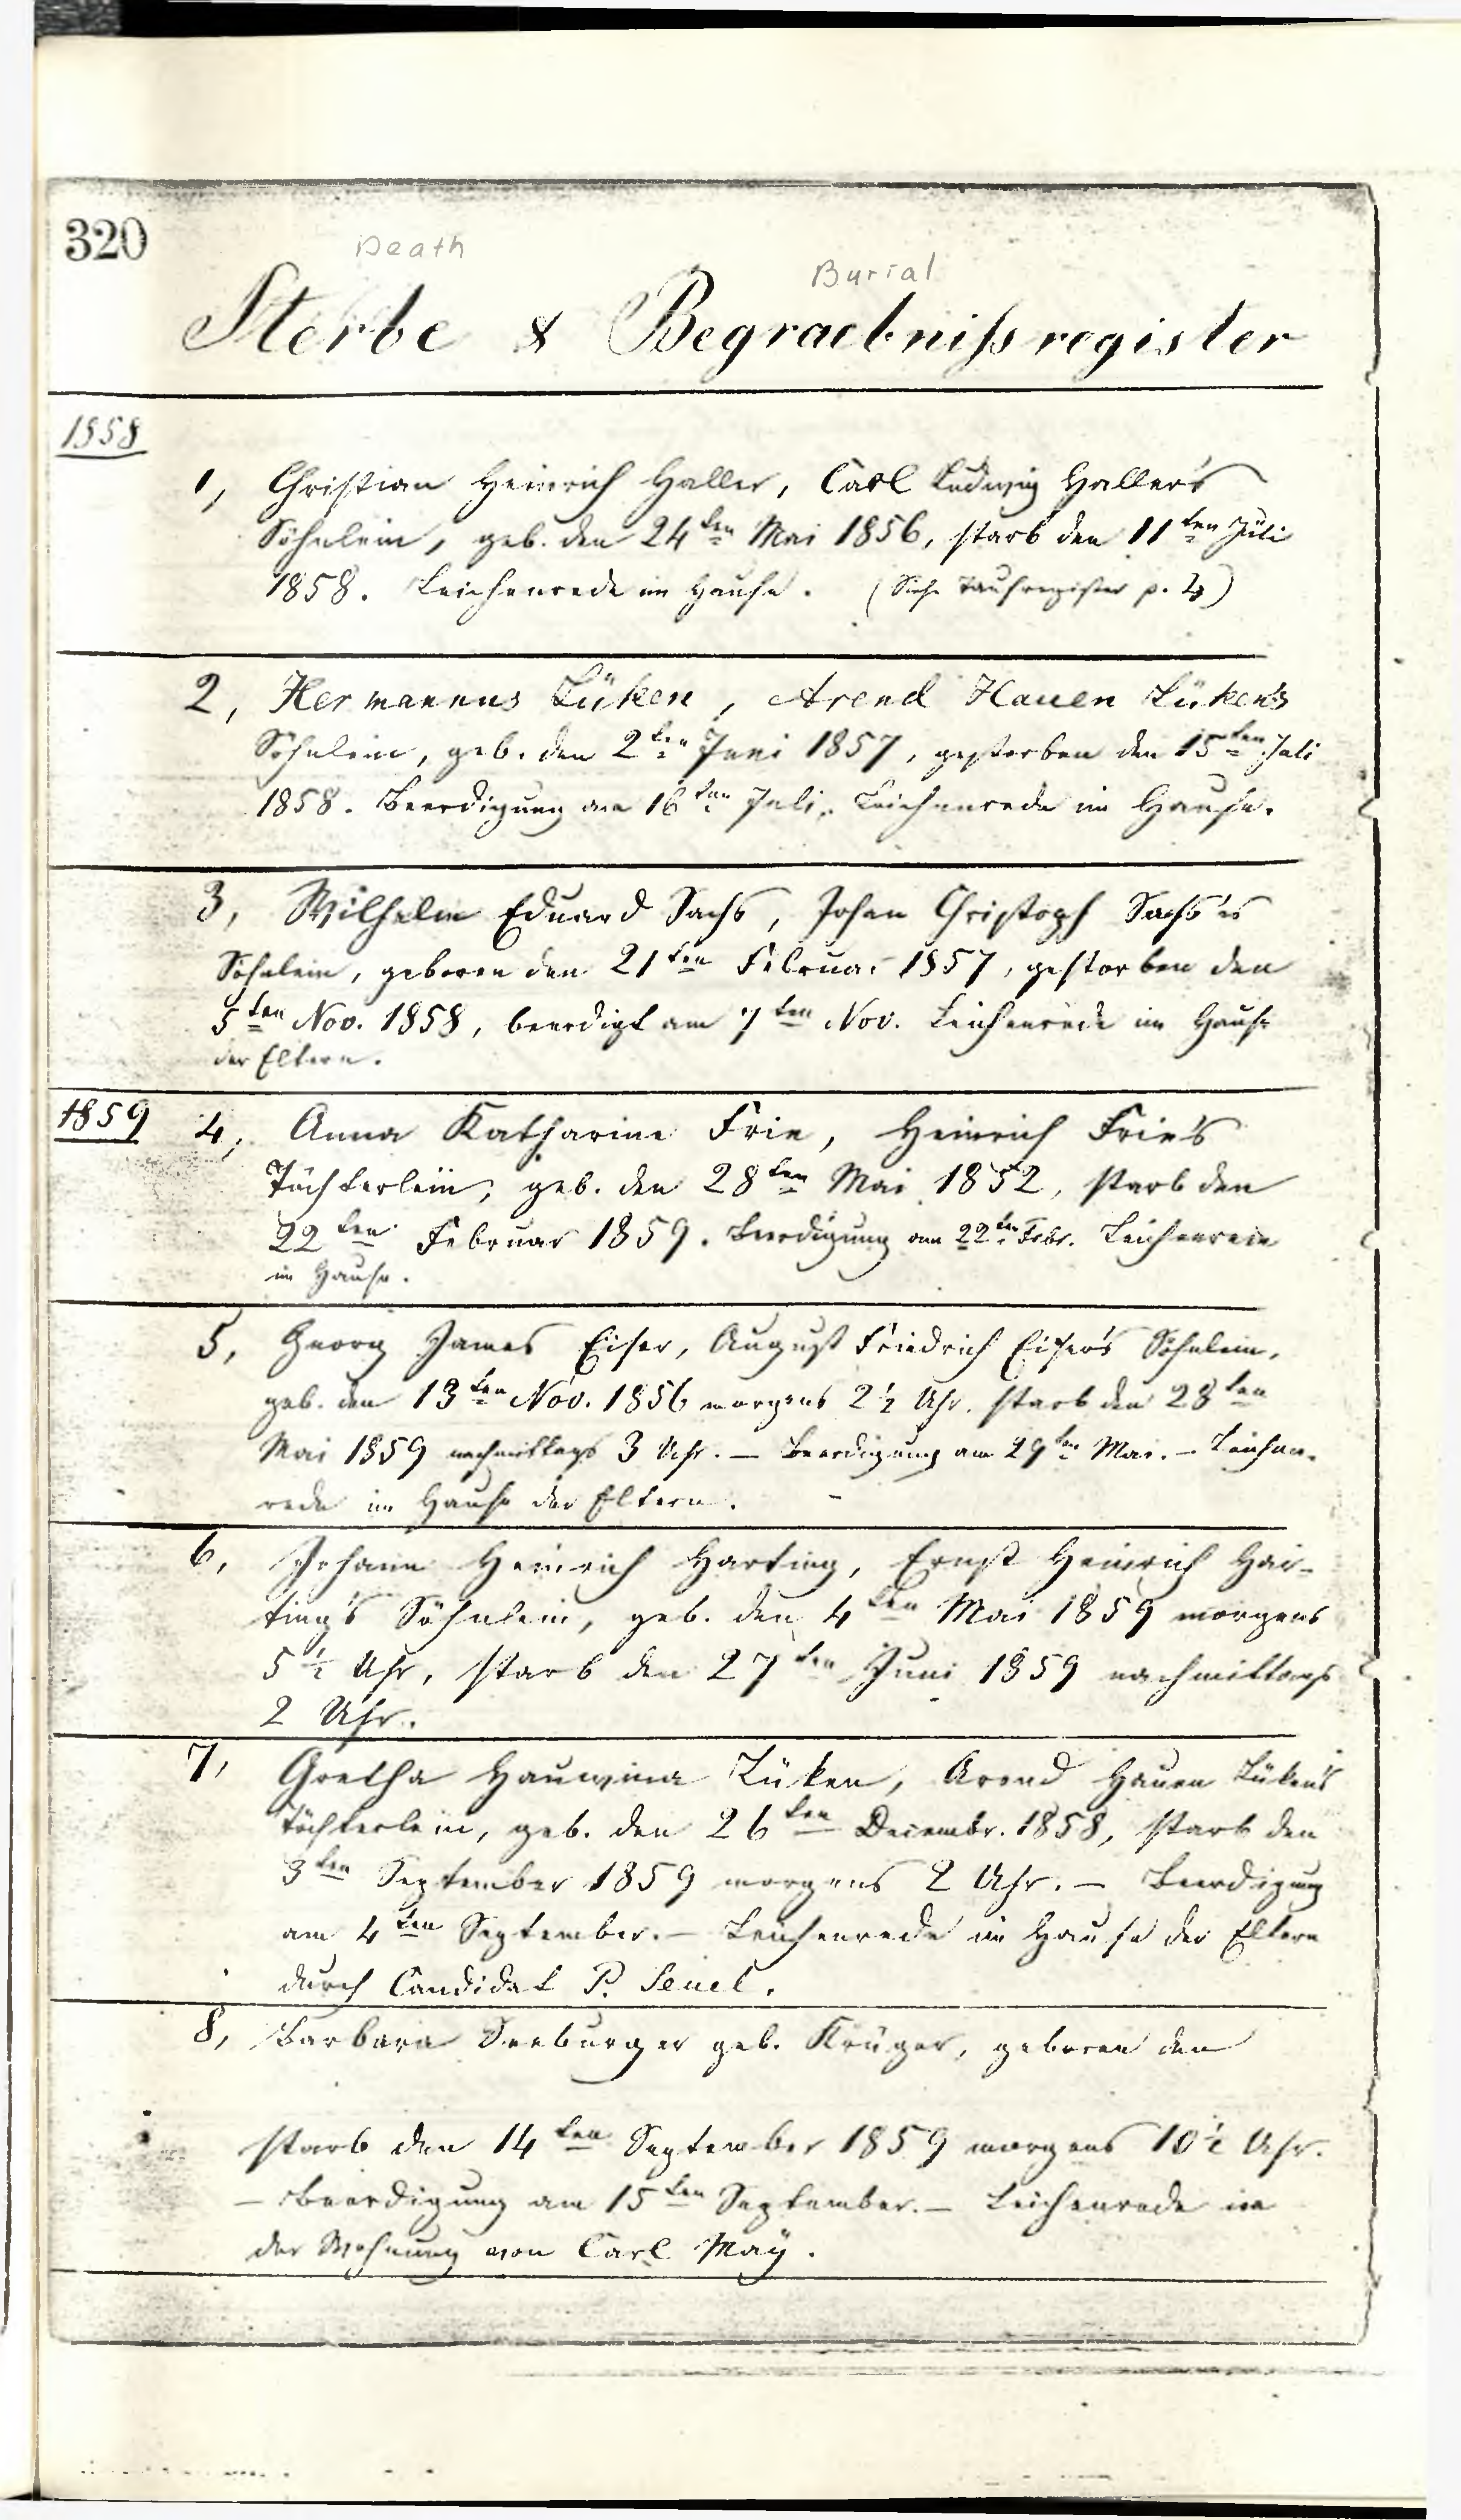 320
Death
Burial
Sterbe & Begraebnißregister
1858
1, Christian Heinrich Haller, Carl Ludwig Haller's
Söhnlein, geb. den 24ten Mai 1856, starb den 11ten Juli
1858. Leichenrede im Hause. (Siehe Taufregister p. 4)
2, Hermannus Lüken, Arend Hauen Lüken's
Söhnlein, geb. den 2ten Juni 1857, gestorben den 15ten Juli
1858. Beerdigung am 16ten Juli. Leichenrede im Hause.
3, Wilhelm Eduard Sachs, Johan Christoph Sachs'es
Söhnlein, geboren den 21ten Februar 1857, gestorben den
5ten Nov. 1858, beerdigt am 7ten Nov. Leichenrede im Hause
der Eltern.
1859
4, Anna Katharine Frie, Heinrich Frie's
Töchterlein, geb. den 28ten Mai 1852, starb den
22ten Februar 1859. Beerdigung am 22ten Febr. Leichenrede
im Hause.
5, Georg James Eiser, August Friedrich Eiser's Söhnlein,
geb. den 13ten Nov. 1856 morgens 2½ Uhr. starb den 28ten
Mai 1859 nachmittags 3 Uhr. — Beerdigung am 29ten Mai. — Leichen-
rede im Hause der Eltern.
6, Johann Heinrich Harting, Ernst Heinrich Har-
ting's Söhnlein, geb. den 4ten Mai 1859 morgens
5½ Uhr, starb den 27ten Juni 1859 nachmittags
2 Uhr.
7, Gretha Hauwina Lüken, Arend Hauen Lüken's
Töchterlein, geb. den 26ten Decembr. 1858, starb den
3ten September 1859 morgens 2 Uhr. — Beerdigung
am 4ten September. — Leichenrede im Hause der Eltern
durch Candidat P. Seuel.
8, Barbara Seeburger geb. Krüger, geboren den
starb den 14ten September 1859 morgens 10½ Uhr.
— Beerdigung am 15ten September. — Leichenrede in
der Wohnung von Carl Maÿ.